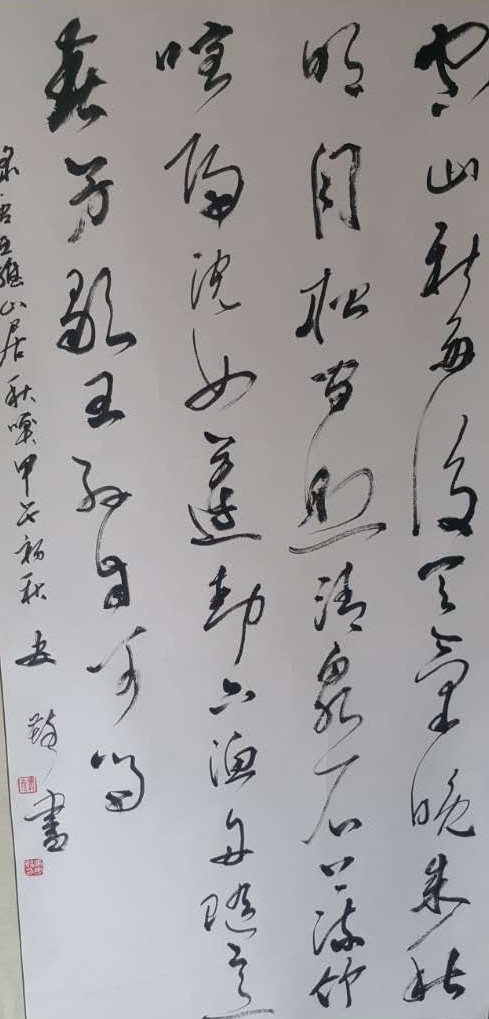 空山新雨後天氣晚來秋
明月松間照清泉石上流竹
喧歸浣女蓮動下漁舟隨意
春芳歇王孫自可留
录唐王維山居秋暝甲辰初秋 書